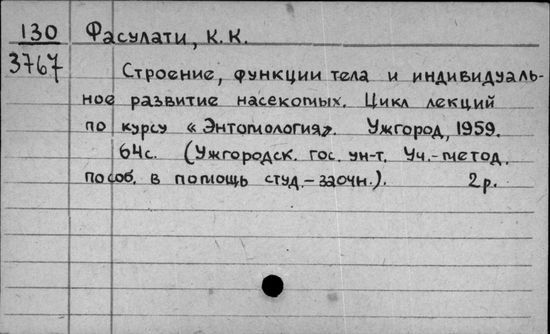 130 Фасулати, К. К.
3767
Строение, функции тела и индивидуаль-
ное развитие насекомых. Цикл лекций
по курсу «Энтомология». Ужгород, 1959.
64с. (Ужгородск. гос. ун-т. Уч.-метод.
пособ. в помощь студ.-заочн.). 2р.